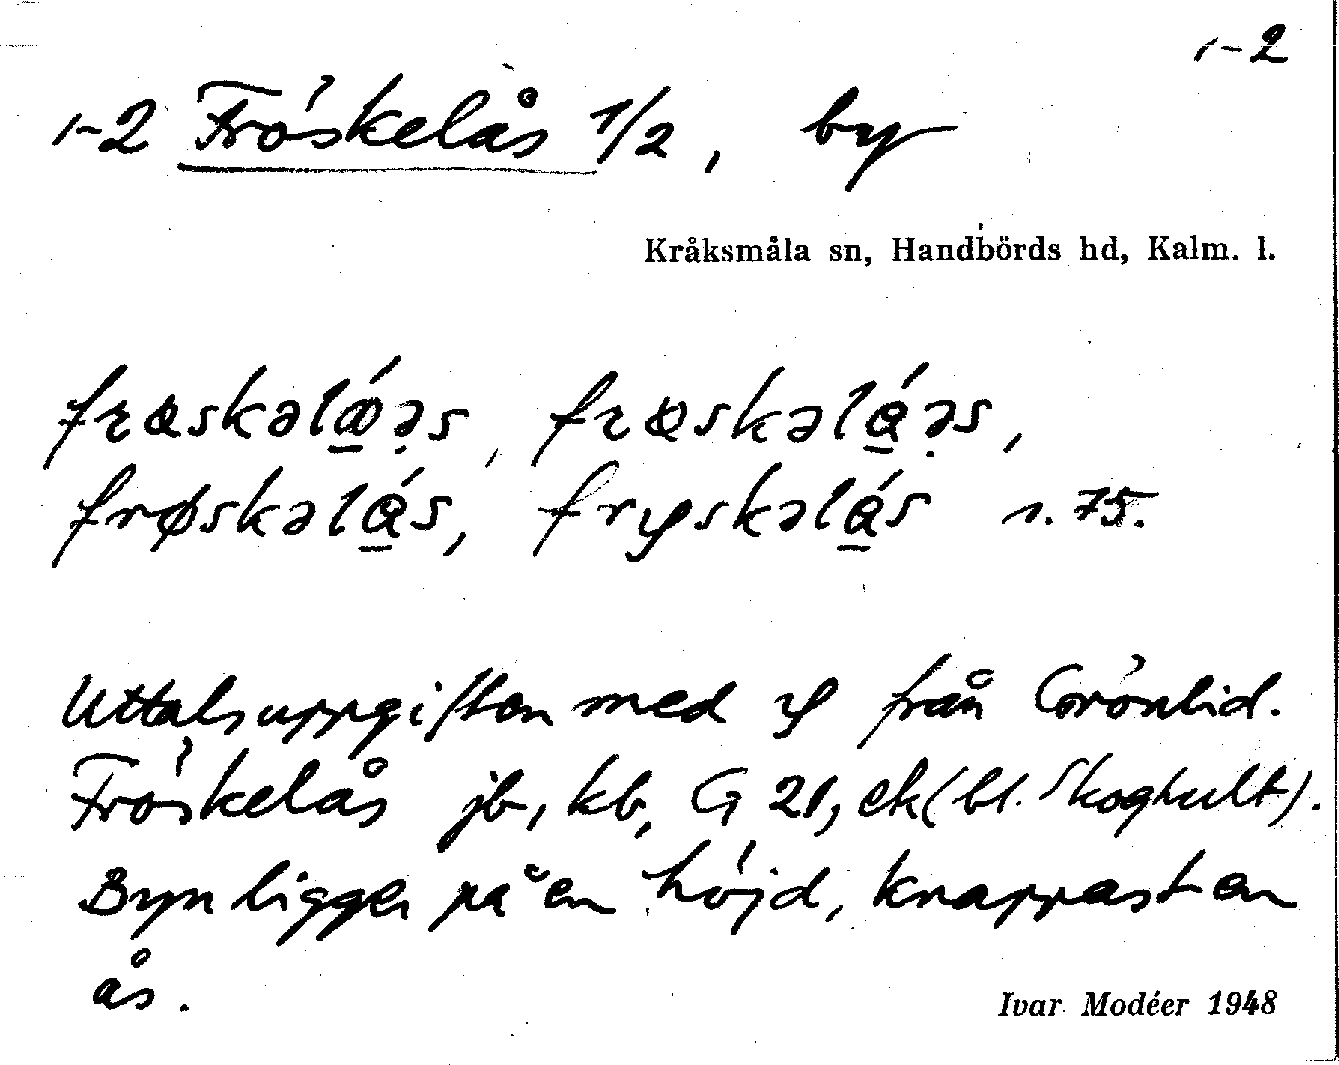 1-2
1-2 Fröskelås 1/2, by
Kråksmåla sn, Handbörds hd, Kalm. l.
frøskəlás, fryskəlás s. 75.
Uttalsuppgiften med y från Grönlid.
Fröskelås jb, kb, G 21, ek (bl. Skoghult).
Byn ligger på en höjd, knappast en
ås.
Ivar Modéer 1948